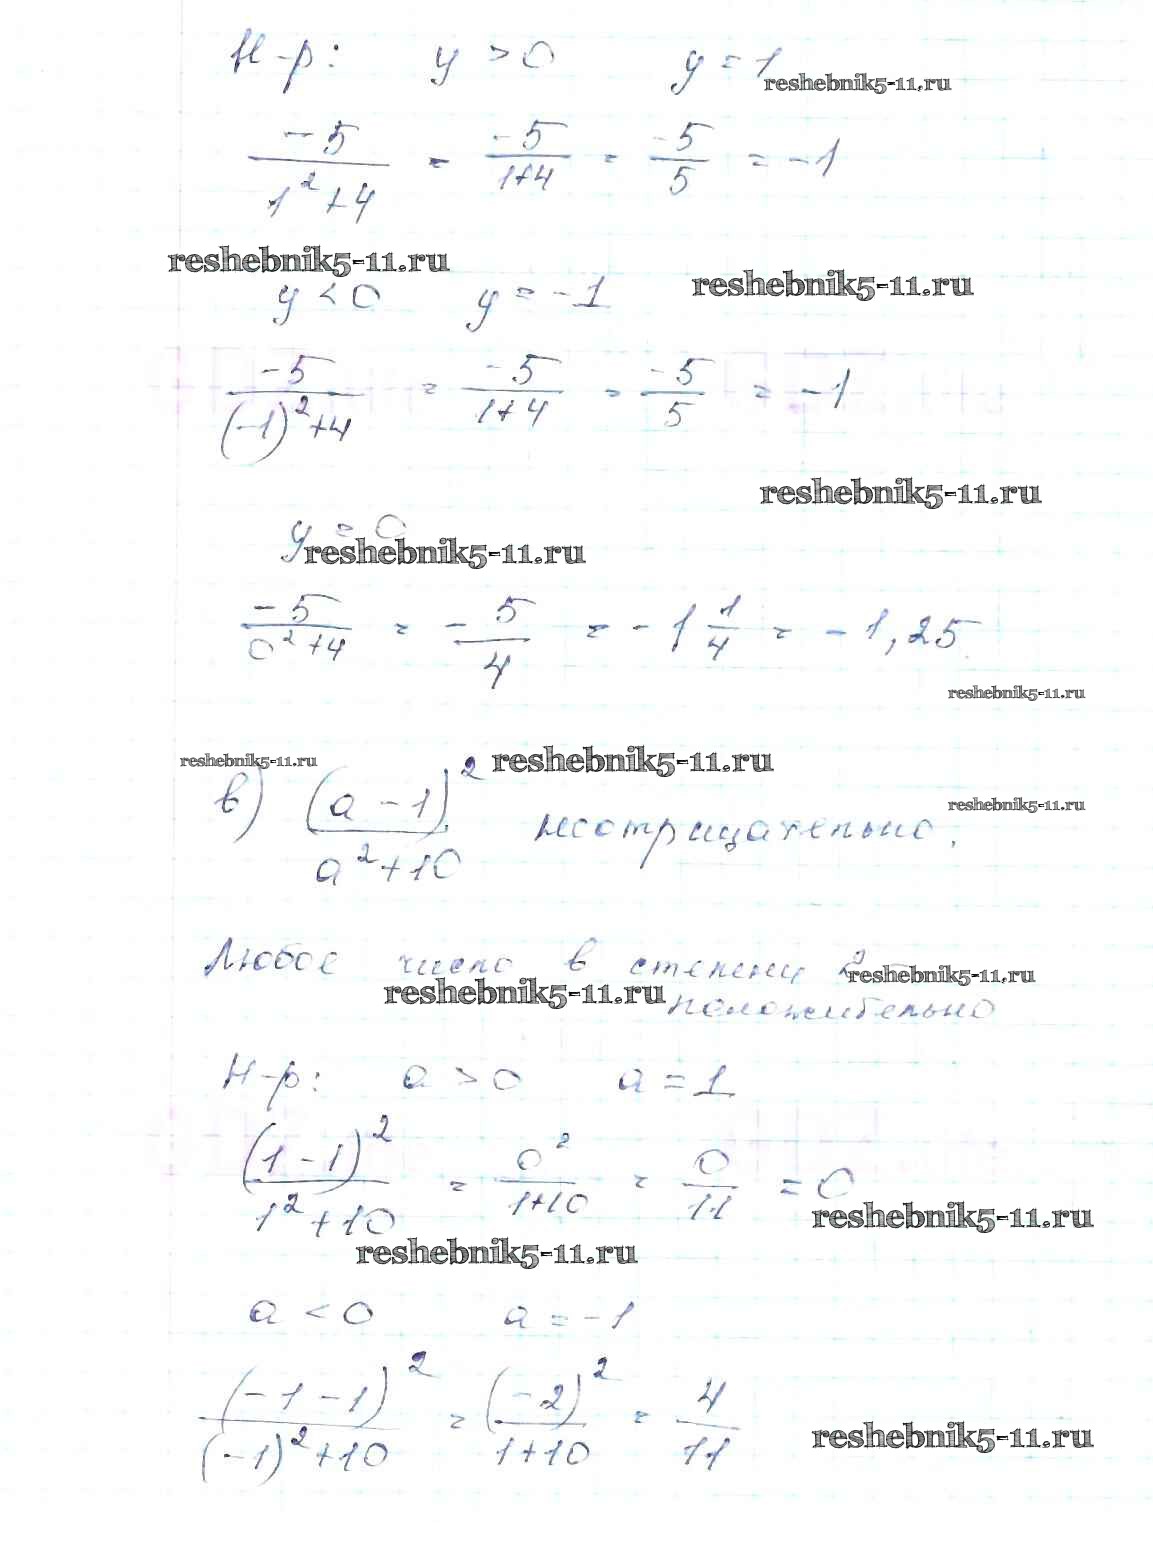 Н-р: y > 0 y = 1
reshebnik5-11.ru
-5/(1²+4) = -5/(1+4) = -5/5 = -1
reshebnik5-11.ru
reshebnik5-11.ru
y < 0 y = -1
-5/((-1)²+4) = -5/(1+4) = -5/5 = -1
reshebnik5-11.ru
y = 0
reshebnik5-11.ru
-5/(0²+4) = -5/4 = -1 1/4 = -1,25
reshebnik5-11.ru
reshebnik5-11.ru
reshebnik5-11.ru
reshebnik5-11.ru
в) (a-1)²/(a²+10) неотрицательно,
Любое число в степени 2
reshebnik5-11.ru
reshebnik5-11.ru
положительно
Н-р: a > 0 a = 1
(1-1)²/(1²+10) = 0²/(1+10) = 0/11 = 0
reshebnik5-11.ru
reshebnik5-11.ru
a < 0 a = -1
(-1-1)²/((-1)²+10) = (-2)²/(1+10) = 4/11
reshebnik5-11.ru